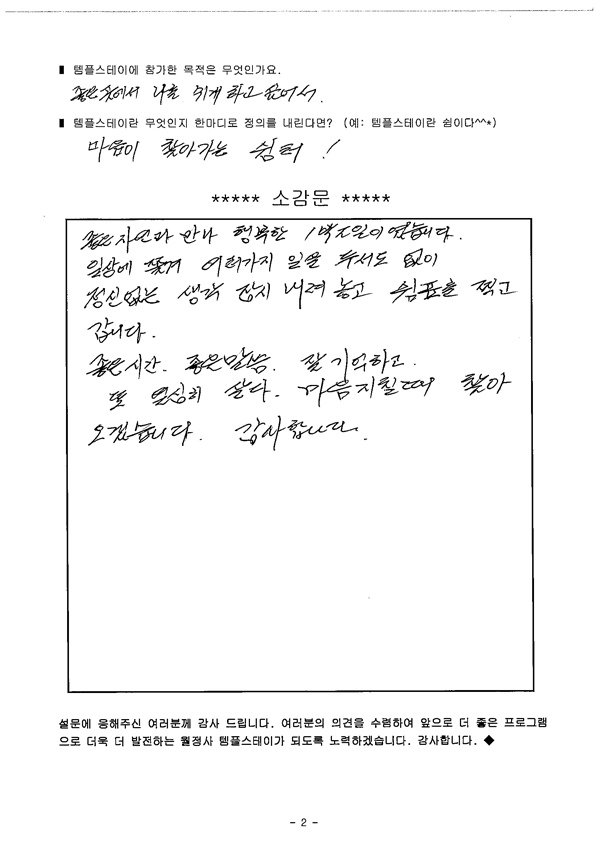 ▮ 템플스테이에 참가한 목적은 무엇인가요.
좋은 곳에서 나를 쉬게 하고 싶어서.
▮ 템플스테이란 무엇인지 한마디로 정의를 내린다면? (예: 템플스테이란 쉼이다^^*)
마음이 찾아가는 쉼터 !
***** 소감문 *****
좋은 자연과 만나 행복한 1박2일이였습니다.
일상에 쫓겨 여러가지 일을 두서도 없이
정신없는 생각 잠시 내려 놓고 쉼표를 찍고
갑니다.
좋은 시간. 좋은말씀. 잘 기억하고.
또 열심히 살다. 마음지칠때 찾아
오겠습니다. 감사합니다.
설문에 응해주신 여러분께 감사 드립니다. 여러분의 의견을 수렴하여 앞으로 더 좋은 프로그램
으로 더욱 더 발전하는 월정사 템플스테이가 되도록 노력하겠습니다. 감사합니다. ◆
- 2 -